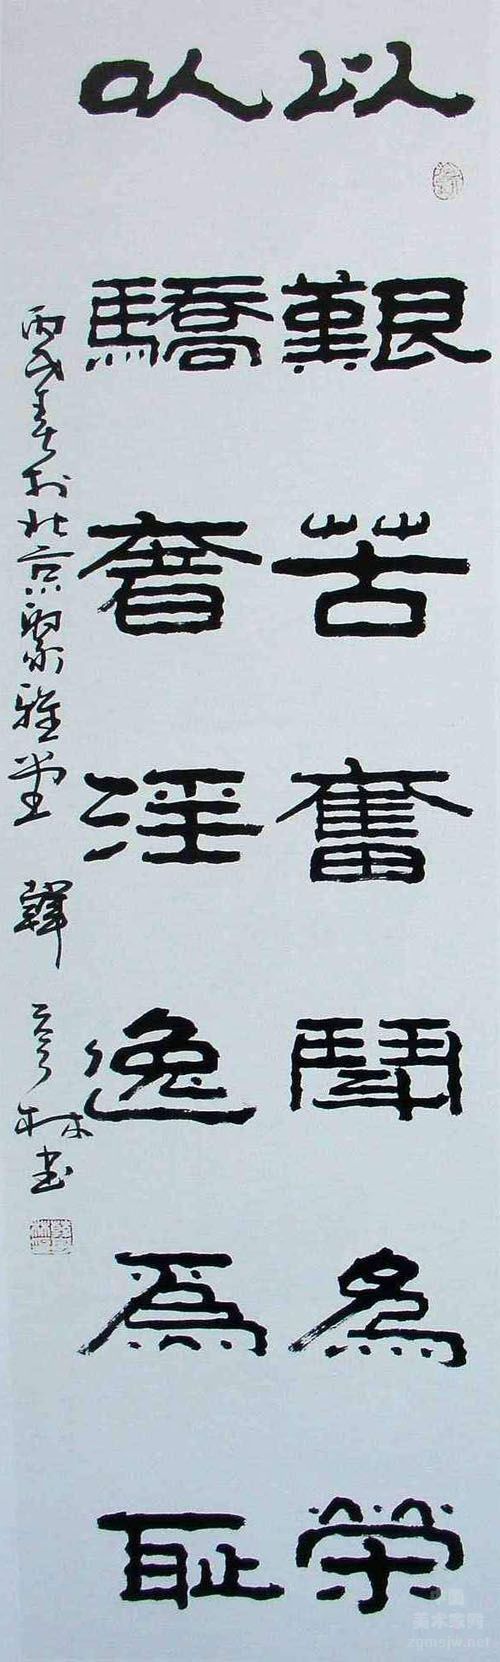 以艱苦奮鬪為榮
以驕奢淫逸為耻
丙戌春於北京聚雅堂 韓 林书
中国
美术家网
zgmsjw.net